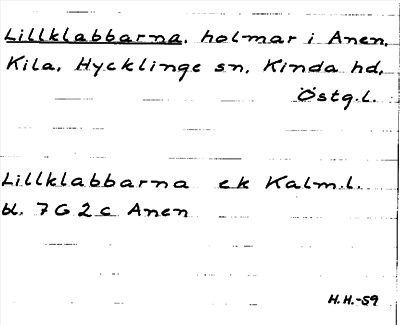 Lillklabbarna, holmar i Anen,
Kila, Hycklinge sn, Kinda hd,
Östg.l.
Lillklabbarna ek Kalm.l.
bl. 7G2c Anen
H.H.-59